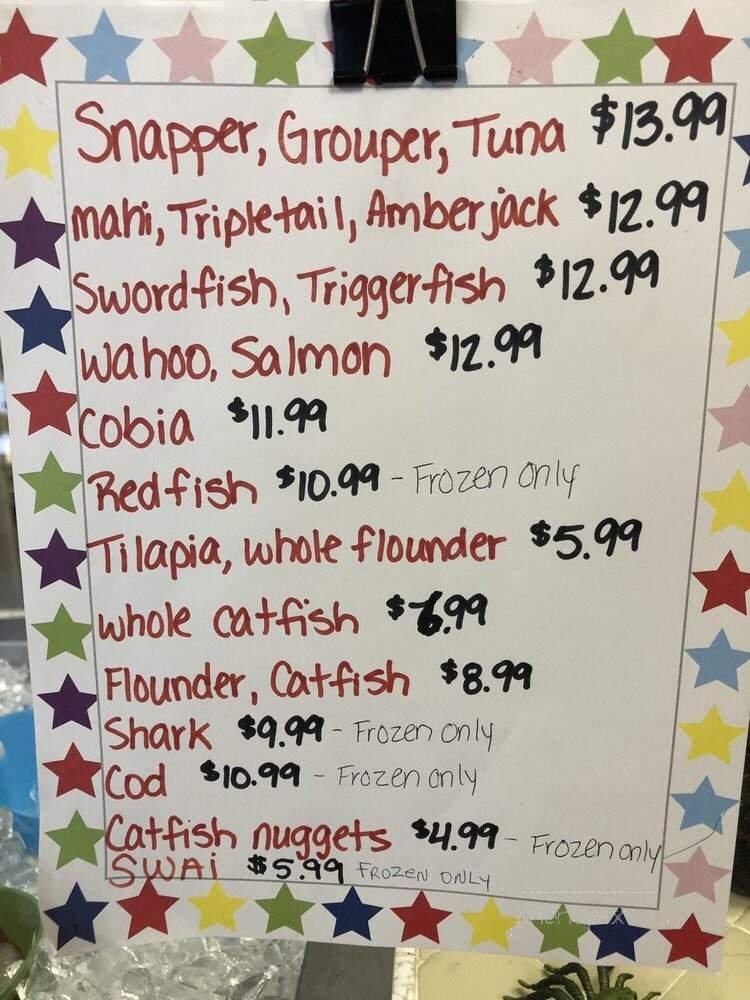 Snapper, Grouper, Tuna $13.99
mahi, Tripletail, Amberjack $12.99
Swordfish, Triggerfish $12.99
wahoo, Salmon $12.99
Cobia $11.99
Redfish $10.99 - Frozen Only
Tilapia, whole flounder $5.99
whole catfish $6.99
Flounder, Catfish $8.99
Shark $9.99 - Frozen only
Cod $10.99 - Frozen only
Catfish nuggets $4.99 - Frozen only
SWAi $5.99 FROZEN ONLY